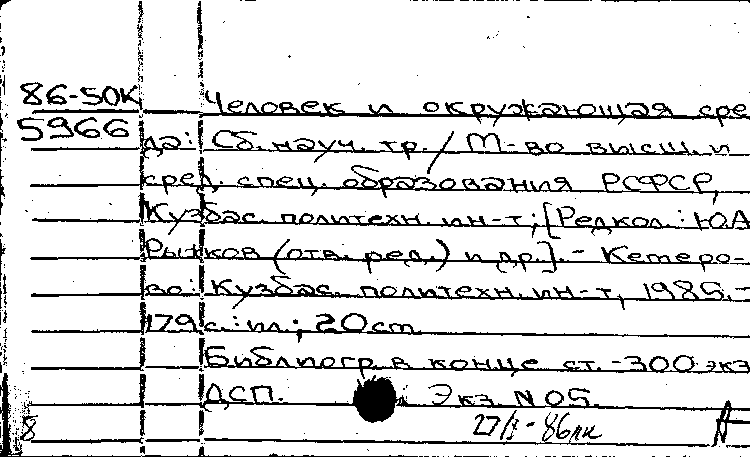 86-50К Человек и окружающая сре
5966 да: Сб. науч. тр. / М-во высш. и
сред. спец. образования РСФСР,
Кузбас. политехн. ин-т; [Редкол.: Ю.А
Рыжков (отв. ред.) и др.]. - Кемеро-
во: Кузбас. политехн. ин-т, 1985. -
179 с.: ил.; 20 cm
Библиогр. в конце ст. - 300 экз
ДСП. Экз. N 05.
8